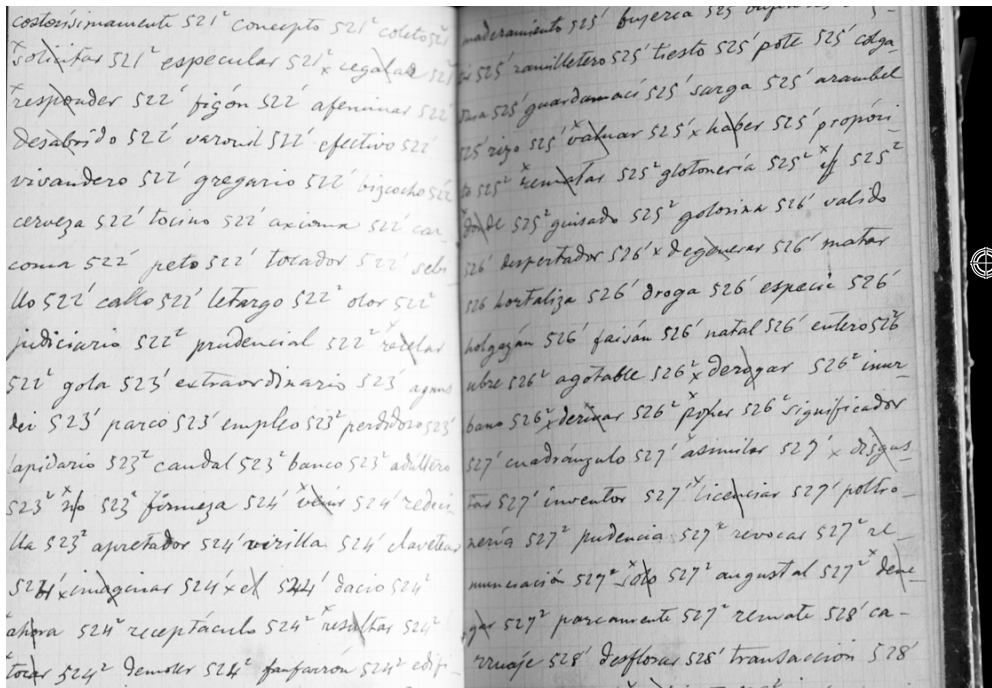 costosísimamente 521² concepto 521' coleto 521
solicitar 521² especular 521² regalar 521
responder 522' figón 522' afeminar 522'
desabrido 522' varonil 522' efectivo 522'
vivandero 522' gregario 522' bizcocho 522
cerveza 522' tocino 522' axioma 522' car-
coma 522' peto 522' tocador 522' sebi
llo 522' callo 522' letargo 522² olor 522²
judiciario 522² prudencial 522² recelar
522² gola 523' extraordinario 523' agnus
dei 523' parco 523' empleo 523² perdidoso 523'
lapidario 523² caudal 523² banco 523² adúltero
523² si/o 523² firmeza 524' venir 524' redeci
lla 523² apretador 524' virilla 524' clavetear
524' imaginar 524' el 524' dacio 524²
ahora 524² receptáculo 524² resultar 524²
tocar 524² demoler 524² fanfarrón 524² edifi-
maderamiento 525' bujería 525
525' ramilletero 525' tiesto 525' pote 525' colga-
dura 525' guardamací 525' sarga 525' arambel
525' rizo 525' valuar 525' haber 525' propósi-
to 525² rematar 525² glotonería 525² if 525²
donde 525² guisado 525² golosina 526' valido
526' despertador 526' degenerar 526' matar
526 hortaliza 526' droga 526' especie 526'
holgazán 526' faisán 526' natal 526' entero 526²
ubre 526² agotable 526² derogar 526² inur-
bano 526² derivar 526² poner 526² significador
527' cuadrángulo 527' asimilar 527' disgus-
tar 527' inventor 527' licenciar 527' poltro-
nería 527² pudencia 527² revocar 527² re-
nunciación 527² solo 527² augustal 527² dene-
gar 527² parcamente 527² remate 528' ca-
rruaje 528' desflorar 528' transacción 528'